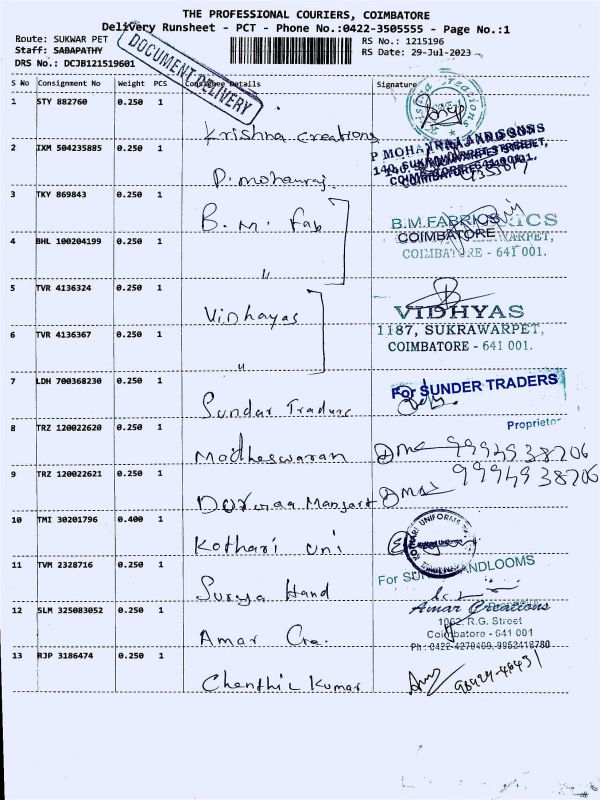 THE PROFESSIONAL COURIERS, COIMBATORE
Delivery Runsheet - PCT - Phone No.:0422-3505555 - Page No.:1
Route: SUKWAR PET
RS No.: 1215196
Staff: SABAPATHY
RS Date: 29-Jul-2023
DRS No.: DCJB121519601
DOCUMENT DELIVERY
S No Consignment No Weight PCS Consignee Details Signature
1 STY 882760 0.250 1
Krishna creations
2 IXM 504235885 0.250 1
P MOHANRAJ AND SONS
140, SUKRAWARPET STREET,
COIMBATORE-641 001.
P. mohanraj
3 TKY 869843 0.250 1
B. M. Fab
B.M.FABRICS
COIMBATORE
4 BHL 100204199 0.250 1
COIMBATORE - 641 001.
"
5 TVR 4136324 0.250 1
Vidhayas
VIDHYAS
1187, SUKRAWARPET,
6 TVR 4136367 0.250 1
COIMBATORE - 641 001.
"
7 LDH 700368230 0.250 1
For SUNDER TRADERS
Sundar
Proprietor
8 TRZ 120022620 0.250 1
Madheswaran
9994938706
9 TRZ 120022621 0.250 1
9994938706
10 TMI 30201796 0.400 1
KOTHARI UNIFORMS
Kothari uni
11 TVM 2328716 0.250 1
For HANDLOOMS
Surya Hand
12 SLM 325083052 0.250 1
Amar Creations
1062, R.G. Street
Coimbatore - 641 001
Ph : 0422-4270409, 9952418780
Amar Crea.
13 RJP 3186474 0.250 1
Chenthil Kumar